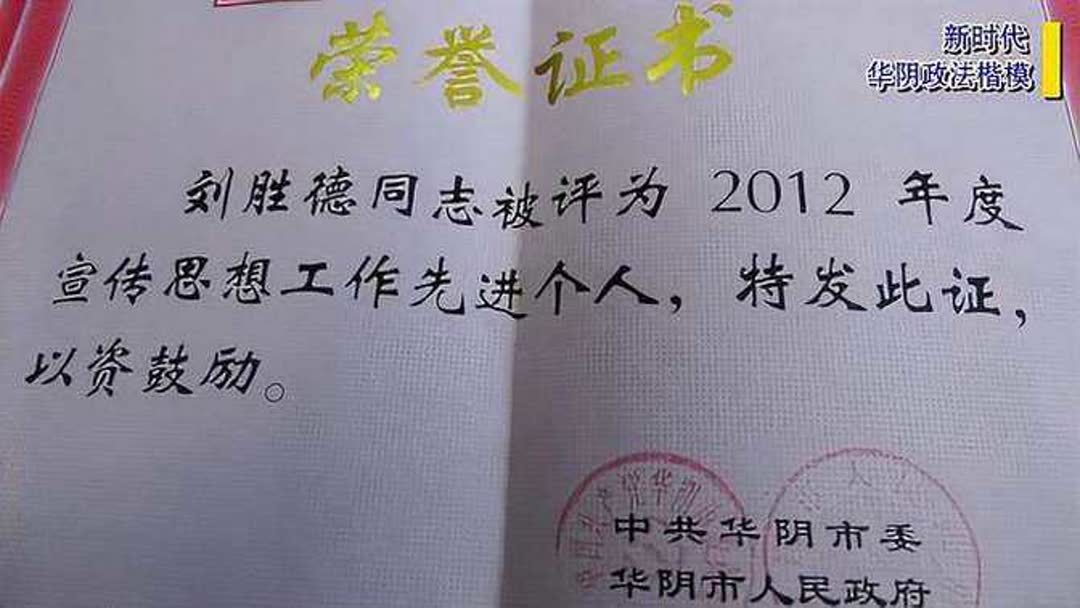 新时代
华阴政法楷模
荣誉证书
刘胜德同志被评为 2012 年度
宣传思想工作先进个人，特发此证，
以资鼓励。
中共华阴市委
华阴市人民政府